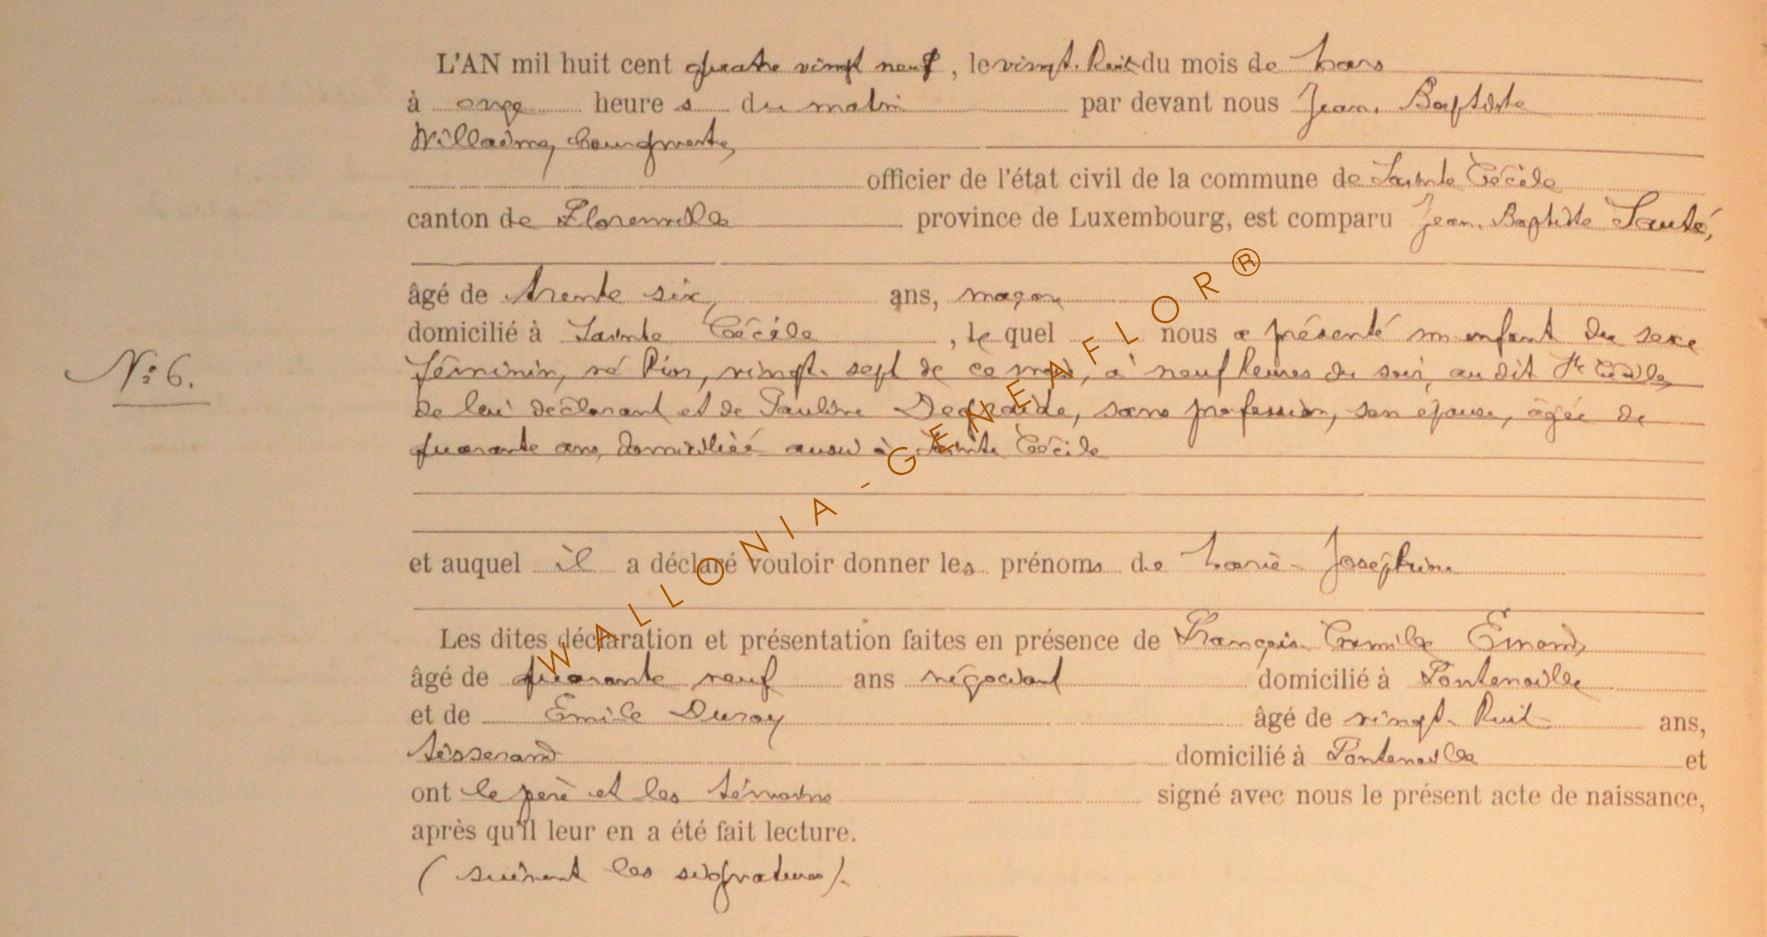 L'AN mil huit cent quatre vingt neuf, le vingt-huit du mois de Mars
à onze heure s du matin par devant nous Jean-Baptiste
Willaime, bourgmestre,
officier de l'état civil de la commune de Sainte Cécile
canton de Florenville province de Luxembourg, est comparu Jean-Baptiste Santé,
âgé de trente six, ans, maçon
domicilié à Sainte Cécile, le quel nous a présenté un enfant du sexe
N° 6.
féminin, né hier, vingt-sept de ce mois, à neuf heures du soir, au dit Ste Cécile,
de lui déclarant et de Pauline sans profession, son épouse, âgée de
quarante ans, domiciliée aussi à Sainte Cécile
et auquel il a déclaré vouloir donner les prénoms de Marie-Joséphine
Les dites déclaration et présentation faites en présence de François Camille Emond,
âgé de quarante neuf ans négociant domicilié à Fontenoille
et de Emile Duroy âgé de vingt-huit ans,
tisserand domicilié à Fontenoille et
ont le père et les témoins signé avec nous le présent acte de naissance,
après qu'il leur en a été fait lecture.
(suivent les signatures).
WALLONIA-GENEAFLOR®